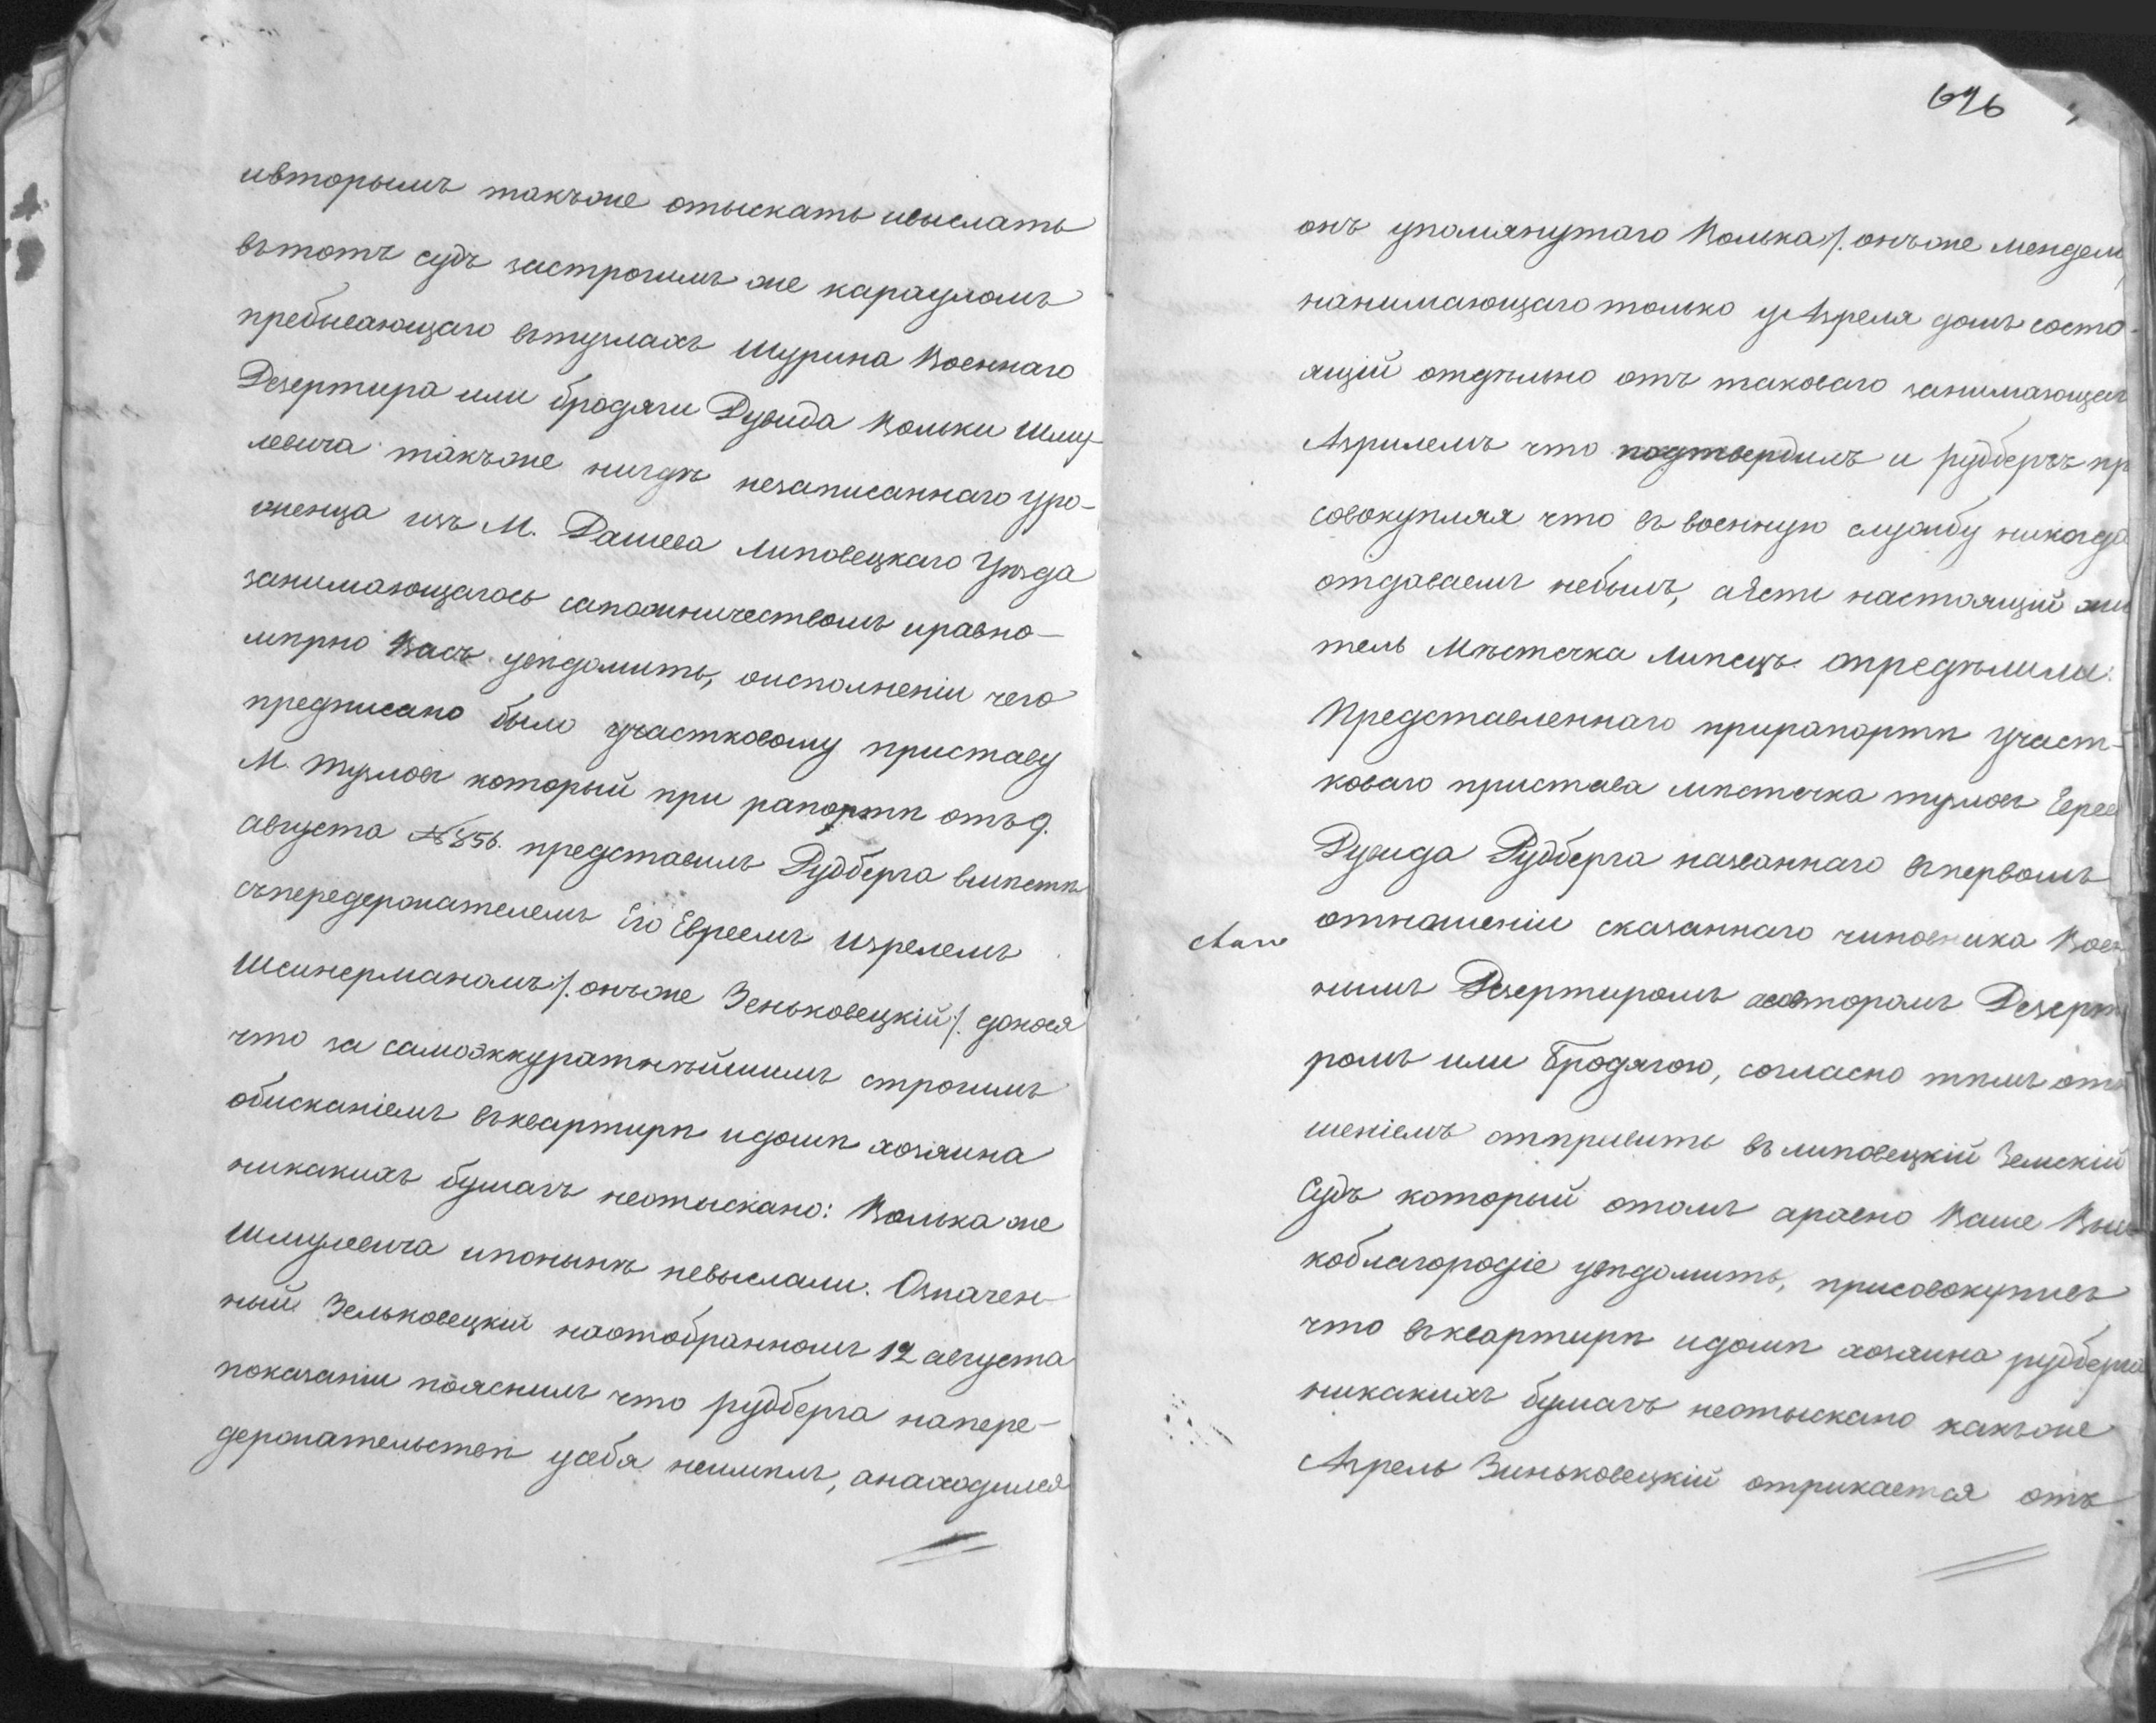 ивторымъ такъже отыскать ивыслать
вътотъ судъ застрогимъ же карауломъ
пребывающаго вътузлахъ Шурина Военнаго
Дезертира или бродяги Дувида Вольки Шму-
левича такъже нигдѣ незаписаннаго уро-
женца изъ М. Дашева Липовецкаго Уѣзда
занимающагось сапожничествомъ иравно-
мѣрно Васъ увѣдомить, оисполненіи чего
предписано было участковому приставу
М. тузловъ который при рапортѣ отъ 9.
августа № 356. представилъ Рудберга вмѣстѣ
съпередержателемъ Его Евреемъ Изрелемъ
Шеинерманомъ /. онъже Зеньковецкій /. донося
что за самоаккуратнѣйшимъ строгимъ
обисканіемъ въквартирѣ идомѣ хозяина
никакихъ бумагъ неотыскано: Волька же
Шмулевича ипонынѣ невыслали. Означен-
ный Зельковецкій наотобранномъ 12 августа
показаніи пояснилъ что рудберга напере-
держательствѣ усебя неимѣлъ, анаходился
696
онъ упомянутаго Волька /. онъже мендель
нанимающаго только у Азреля домъ состо-
ящій отдѣльно отъ таковаго занимающаг
Азрилемъ что подтвердилъ и рудбергъ пр
совокупляя что въ военную службу никогда
отдаваемъ небылъ, аѣсть настоящій жи
тель Мѣстечка Липецъ опредѣлили:
Представленнаго прирапортѣ участ-
коваго пристава мѣстечка тузловъ Еврея
Дувида Рудберга названнаго въпервомъ
отношеніи сказаннаго чиновника Воен
нымъ Дезертиромъ авовторомъ Дезерт
ромъ или Бродягою, согласно тѣмъ отн
шеніемъ отправить въ липовецкій Земскій
Судъ который отомъ аравно Ваше Выс
коблагородіе увѣдомить, присовокупивъ
что въквартирѣ идомѣ хозяина рудберга
никакихъ бумагъ неотыскано какъже
Азрель Зиньковецкій отрикается отъ